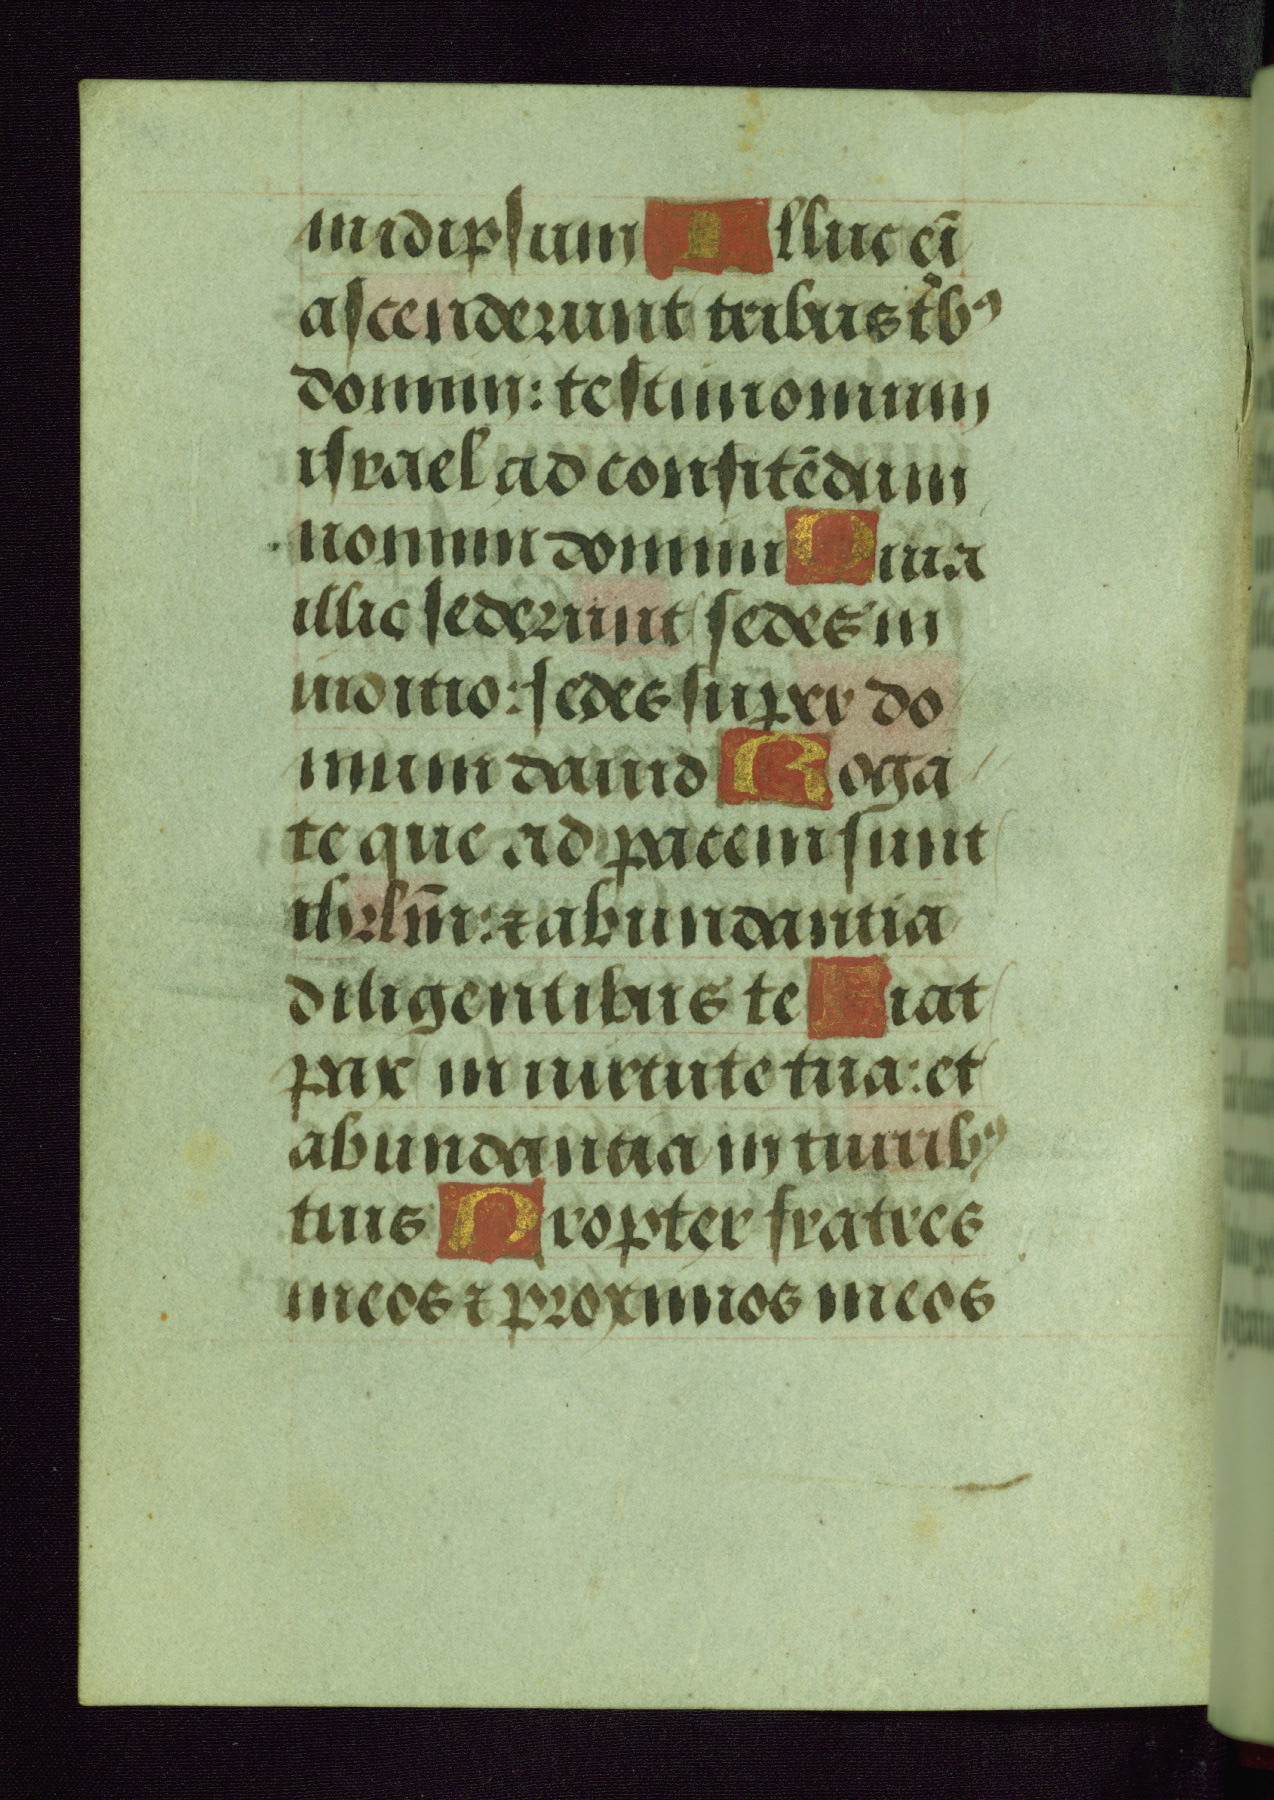 in idipsum Illuc eī
ascenderunt tribus t̾bꝰ
domini: testimonium
israel ad confitēdum
nomini domini Quia
illic sederunt sedes in
iuditio: sedes super do
mum dauid Roga
te que ad pacem sunt
ihrlm̄: ⁊ abundantia
diligentibus te Fiat
pax in uirtute tua: et
abundantia in turribꝰ
tuis Propter fratres
meos ⁊ proximos meos